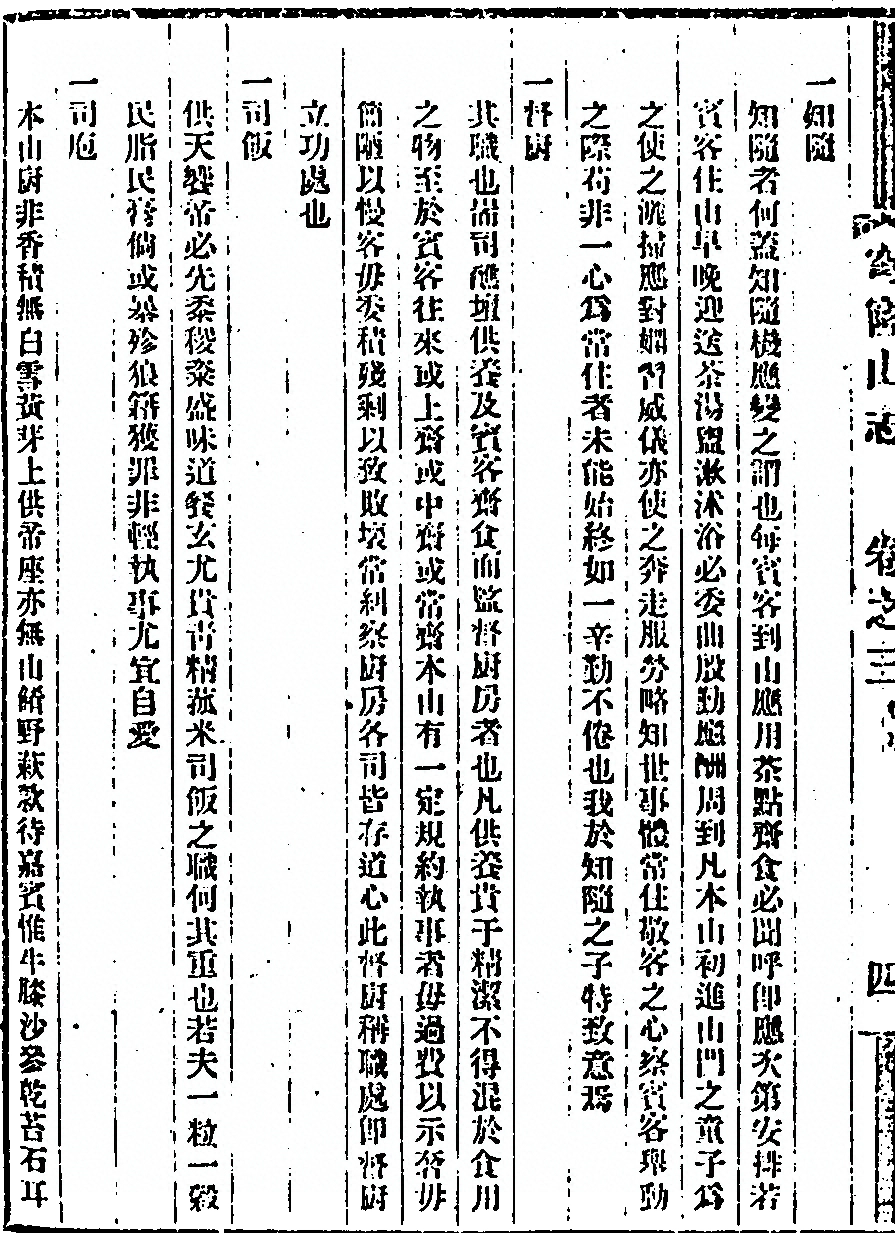 一知隨
知隨者何蓋知隨機應變之謂也每賓客到山應用茶點齋食必聞呼卽應次第安排若
賓客住山早晚迎送茶湯盥漱沐浴必委曲殷勤應酬周到凡本山初進山門之童子爲
之使之洒掃應對嫻習威儀亦使之奔走服勞略知世事體常住敬客之心察賓客舉動
之際苟非一心爲常住者未能始終如一辛勤不倦也我於知隨之子特致意焉
一督厨
其職也品司醮壇供養及賓客齋食而監督厨房者也凡供養貴于精潔不得混於食用
之物至於賓客往來或上齋或中齋或常齋本山有一定規約執事者毋過費以示奢毋
簡陋以慢客毋委積殘剩以致敗壞常糾察厨房各司皆存道心此督厨稱職處卽督厨
立功處也
一司飯
供天饗帝必先黍稷粢盛味道餐玄尤貴青精菰米司飯之職何其重也若夫一粒一穀
民脂民膏倘或暴殄狼籍獲罪非輕執事尤宜自愛
一司庖
本山厨非香積無白雪黃芽上供帝座亦無山餚野蔌款待嘉賓惟牛膝沙參乾苔石耳
山志　卷之三　四